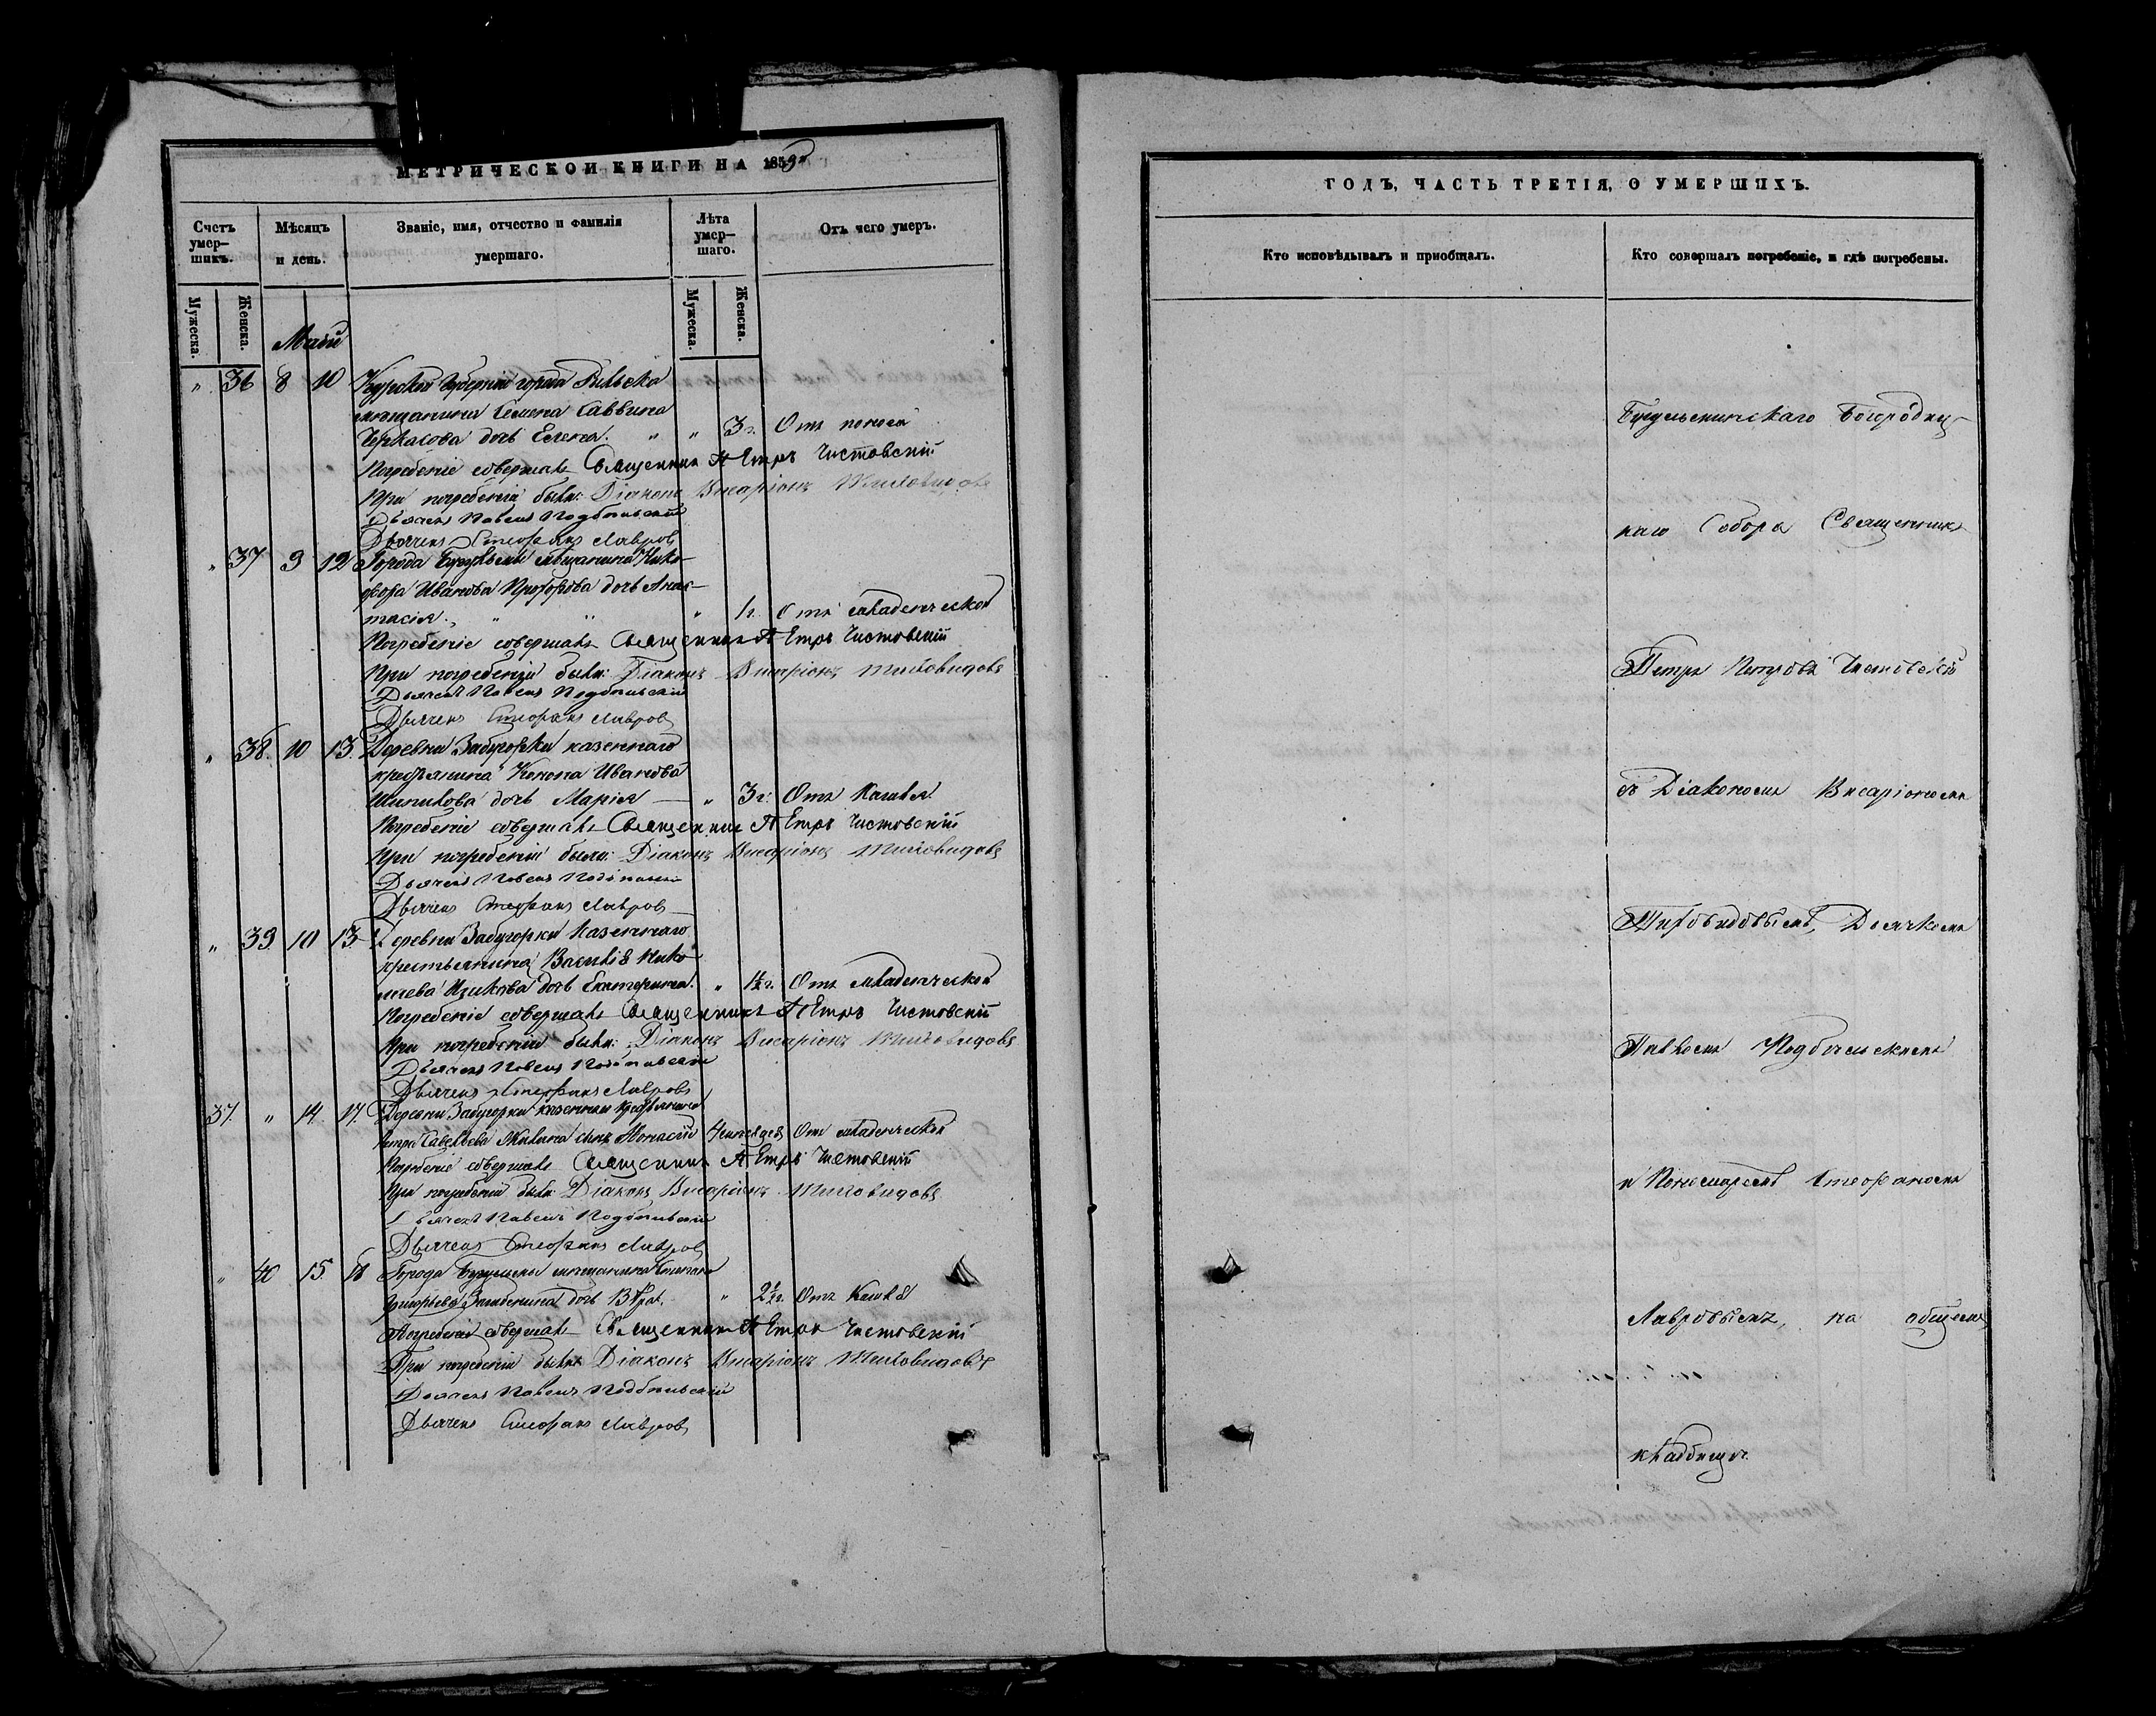 МЕТРИЧЕСКОЙ КНИГИ НА 1859й
Счетъ умер— шихъ.
Мѣсяцъ и день.
Званіе, имя, отчество и фамилія умершаго.
Лѣта умер— шаго.
Отъ чего умеръ.
Мужеска.
Женска.
Мужеска.
Женска.
Май
" 36 8 10 Курской Губерніи города Рыльска
мѣщанина Семена Саввина
Черкасова дочь Елена. " " 3 г. Отъ поноса
Погребеніе совершалъ Священникъ Петръ Чистовскій
При погребеніи были: Діаконъ Висаріонъ Миловидовъ
Дьячекъ Павелъ Подбѣльскій
Дьячекъ Стефанъ Лавровъ
" 37 9 12 Города Бугульмы мѣщанина Ники—
фора Иванова Прохорова дочь Анас—
тасія. " " " 1 г. Отъ младенческой
Погребеніе совершалъ Священникъ Петръ Чистовскій
При погребеніи были: Діаконъ Висаріонъ Миловидовъ
Дьячекъ Павелъ Подбѣльскій
Дьячекъ Стефанъ Лавровъ
" 38. 10 13. Деревни Забугоровки казеннаго
крестьянина Конона Иванова
дочь Марія — " 3 г. Отъ Кашля.
Погребеніе совершалъ Священникъ Петръ Чистовскій
При погребеніи были: Діаконъ Висаріонъ Миловидовъ
Дьячекъ Павелъ
Дьячекъ Стефанъ Лавровъ
" 39 10 13 Деревни Забугорки Казеннаго
крестьянина Василія Нико—
лаева дочь Екатерина. " 1½ г. Отъ младенческой
Погребеніе совершалъ Священникъ Петръ Чистовскій
При погребеніи были: Діаконъ Висаріонъ Миловидовъ
Дьячекъ Павелъ Подбѣльскій
Дьячекъ Стефанъ Лавровъ
37. " 14 17. Деревни Забугорки казеннаго крестьянина
Петра Савельева сынъ 4 Отъ младенческой
Погребеніе совершалъ Священникъ Петръ Чистовскій
При погребеніи были: Діаконъ Висаріонъ Миловидовъ
Дьячекъ Павелъ Подбѣльскій
Дьячекъ Стефанъ Лавровъ
" 40 15. 18 Города Бугульмы мѣщанина Степана
Григорьева дочь " 2½ г. Отъ Кашля
Погребеніе совершалъ Священникъ Петръ Чистовскій
При погребеніи были: Діаконъ Висаріонъ Миловидовъ
Дьячекъ Павелъ Подбѣльскій
Дьячекъ Стефанъ Лавровъ
ГОДЪ, ЧАСТЬ ТРЕТІЯ, О УМЕРШИХЪ.
Кто исповѣдывалъ и пріобщалъ.
Кто совершалъ погребеніе, и гдѣ погребены.
Бугульминскаго Богородиц—
каго Собора Священникъ
Петръ Петровъ Чистовскій
съ Діакономъ Висаріономъ
Миловидовымъ, Дьячкомъ
Павломъ Подбѣльскимъ
и Пономаремъ Стефаномъ
Лавровымъ, на общемъ
кладбищѣ.